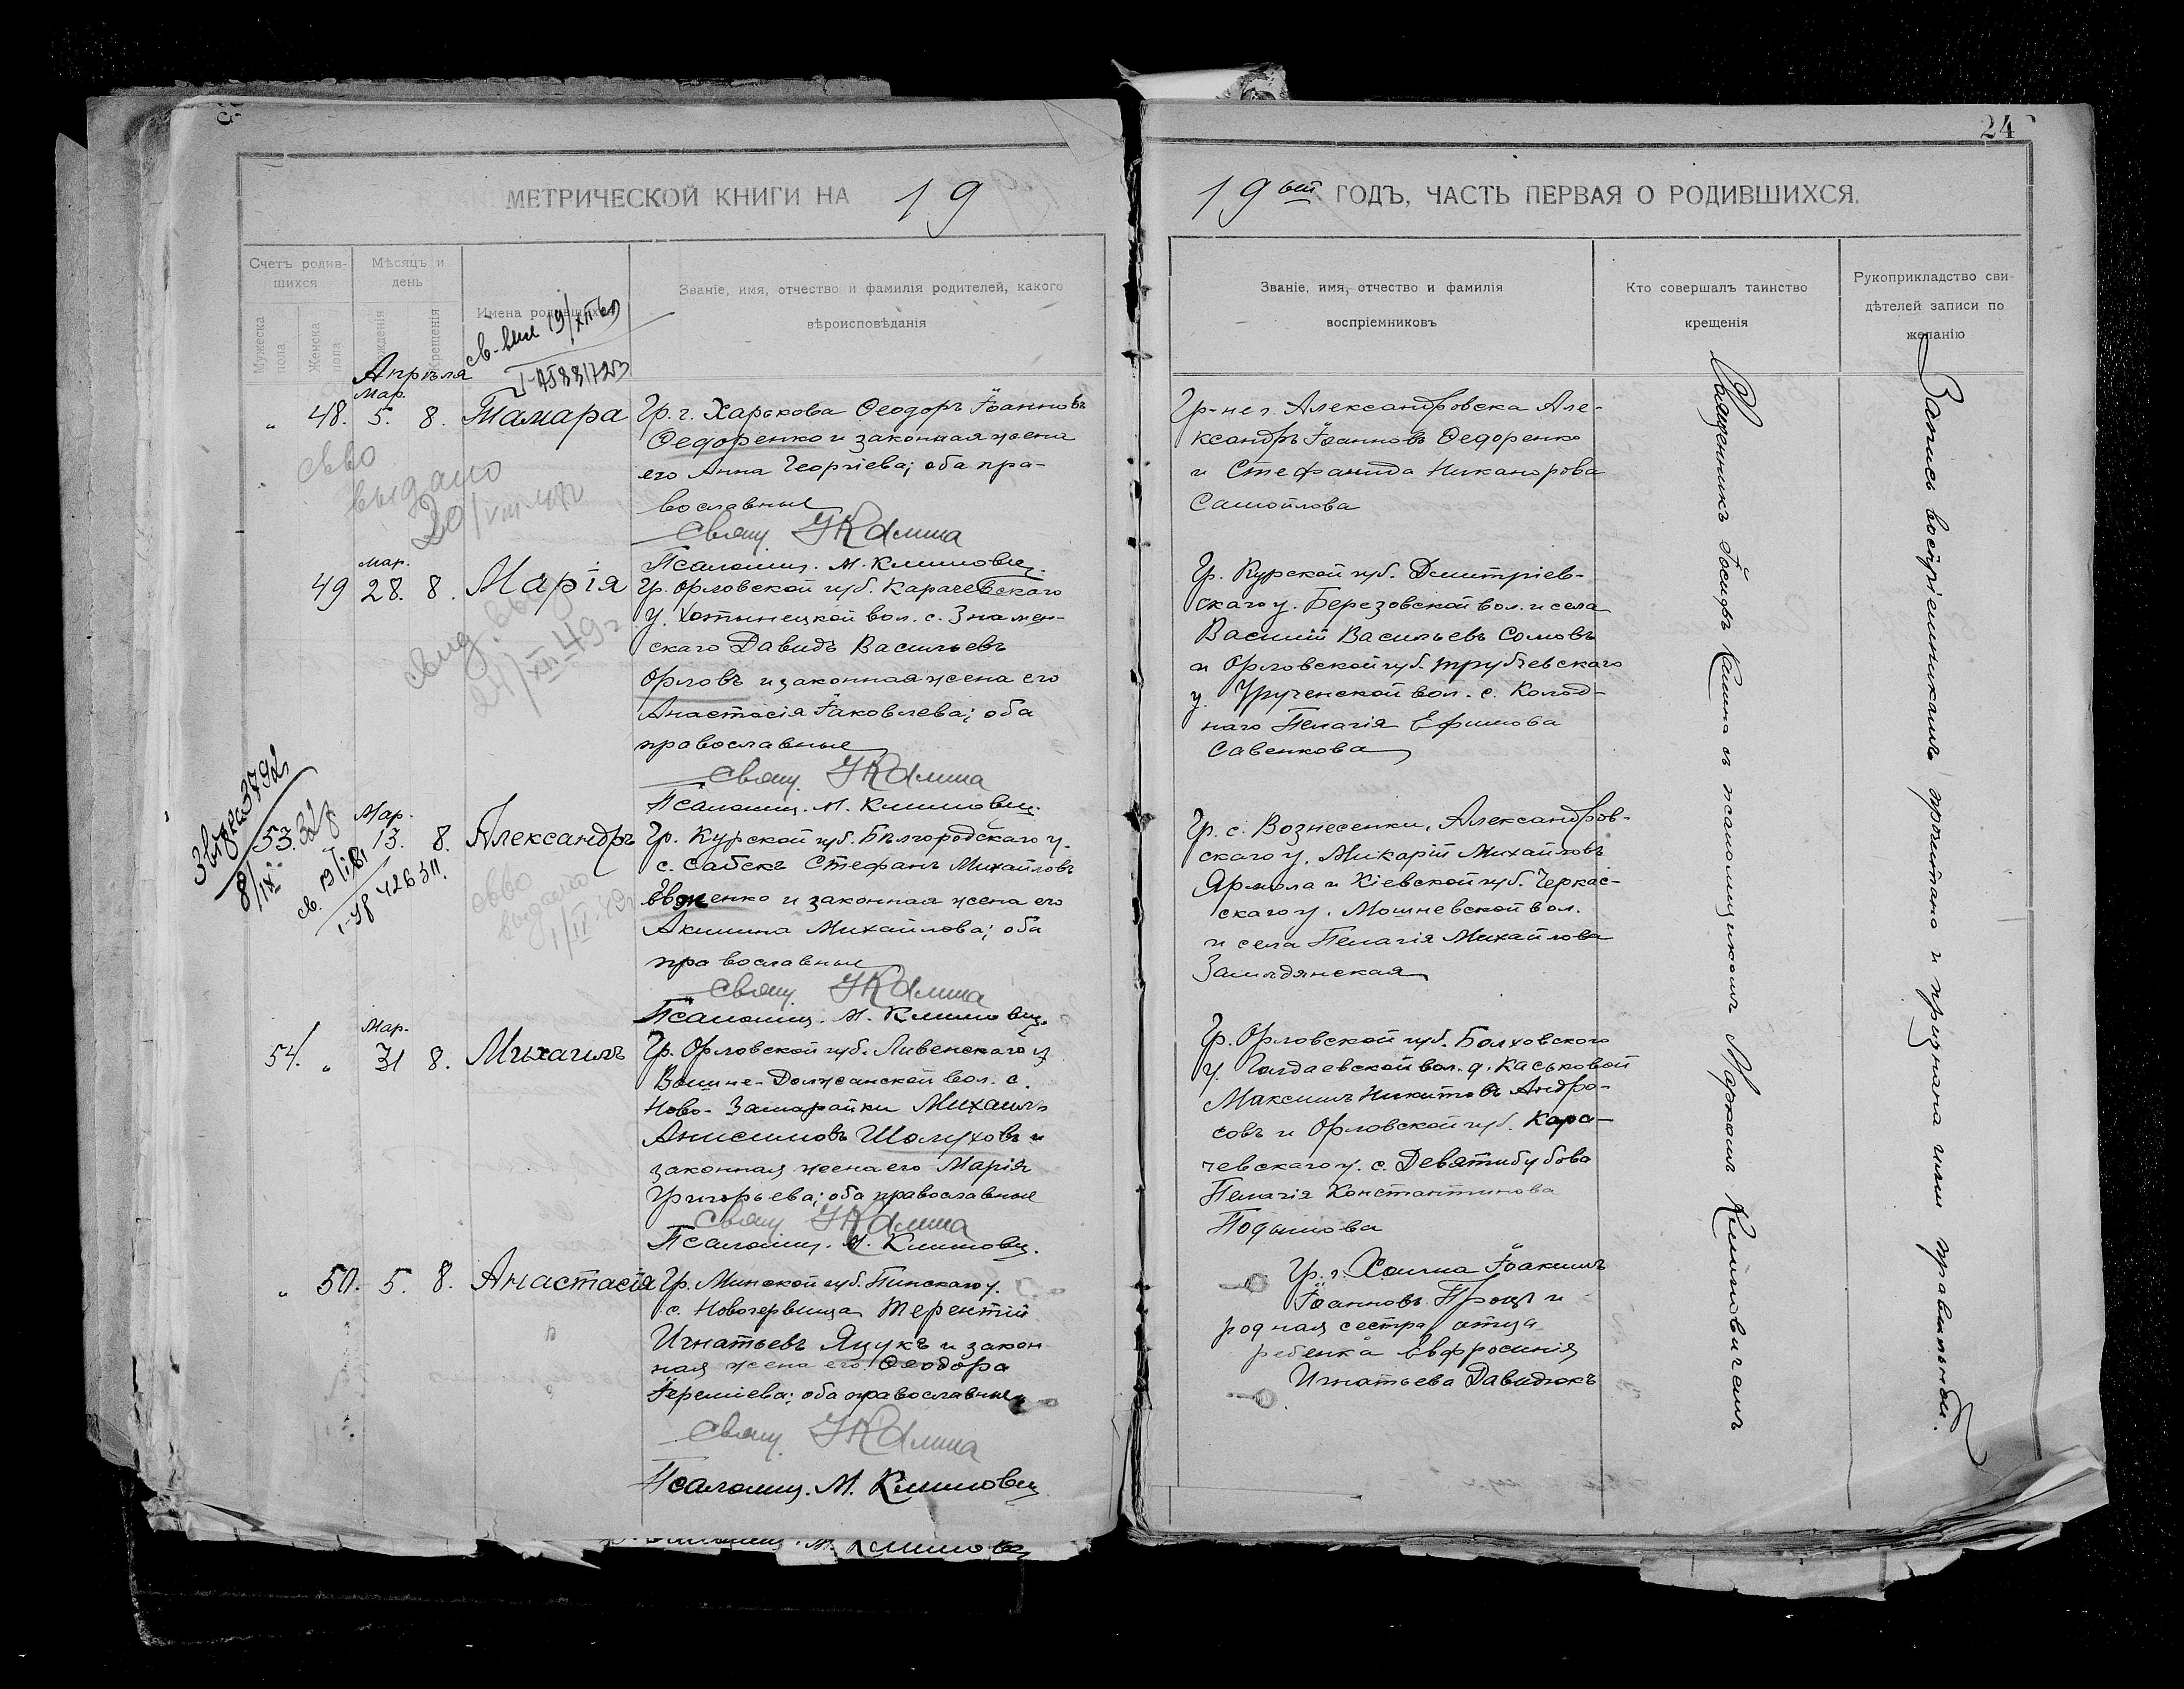 24
МЕТРИЧЕСКОЙ КНИГИ НА 19
19ый ГОДЪ, ЧАСТЬ ПЕРВАЯ О РОДИВШИХСЯ.
Счетъ родив-
шихся
Мужеска пола
Женска пола
Мѣсяцъ и
день
рожденія
крещенія
Имена родившихся
Званіе, имя, отчество и фамилія родителей, какого
вѣроисповѣданія
Званіе, имя, отчество и фамилія
воспріемниковъ
Кто совершалъ таинство
крещенія
Рукоприкладство сви-
дѣтелей записи по
желанію
Апрѣля
Мар.
" 48. 5. 8. Тамара
Гр. г. Харькова Ѳеодоръ Іоанновъ
Ѳедоренко и законная жена
его Анна Георгіева; оба пра-
вославные
Свящ. І Калина
Псаломщ. М. Климович.
Гр-не г. Александровска Але-
ксандръ Іоанновъ Ѳедоренко
и Стефанида Никанорова
Самойлова
св-во
выдано
20/VIII
Мар.
49 28. 8. Марія
Гр. Орловской губ. Карачевскаго
у. Хотынецкой вол. с. Знамен-
скаго Давидъ Васильевъ
Орловъ и законная жена его
Анастасія Іаковлева; оба
православные
Свящ. І Калина
Псаломщ. М. Климович.
Гр. Курской губ. Дмитріев-
скаго у. Березовской вол. и села
Василій Васильевъ Сомовъ
и Орловской губ. Трубчевскаго
у. Урученской вол. с. Колод-
наго Пелагія Ефимова
Савенкова
свид. выд.
24/XII 49 г.
Мар.
53. 13. 8. Александръ
Гр. Курской губ. Бѣлгородскаго у.
с. Сабскъ Стефанъ Михайловъ
Евженко и законная жена его
Акилина Михайлова; оба
православные
Свящ. І Калина
Псаломщ. М. Климович.
Гр. с. Вознесенки, Александров-
скаго у. Макарій Михайловъ
Ярмола и Кіевской губ. Черкас-
скаго у. Мошневской вол.
и села Пелагія Михайлова
Замлдянская
св-во
выдано
Мар.
54. " 31 8. Михаилъ
Гр. Орловской губ. Ливенскаго у.
Вышне-Должанской вол. с.
Ново-Замарайки Михаилъ
Анисимовъ Шолуховъ и
законная жена его Марія
Григорьева; оба православные
Свящ. І Калина
Псаломщ. М. Климович.
Гр. Орловской губ. Болховского
у. Голдаевской вол. д. Каськовой
Максимъ Никитовъ Андро-
совъ и Орловской губ. Кара-
чевскаго у. с. Девятидубова
Пелагія Константинова
Подымова
" 50. 5. 8. Анастасія
Гр. Минской губ. Пинскаго у.
с. Новочервища Терентій
Игнатьевъ Яцукъ и закон-
ная жена его Ѳеодора
Іереміева; оба православные
Свящ. І Калина
Псаломщ. М. Климович
Гр. г. Холма Іоакимъ
Іоанновъ Процъ и
родная сестра отца
ребенка Евфросинія
Игнатьева Давидюкъ
Священникъ Іосифъ Калина съ псаломщикомъ Маркомъ Климовичемъ
Запись воспріемникамъ прочитана и признана ими правильной.